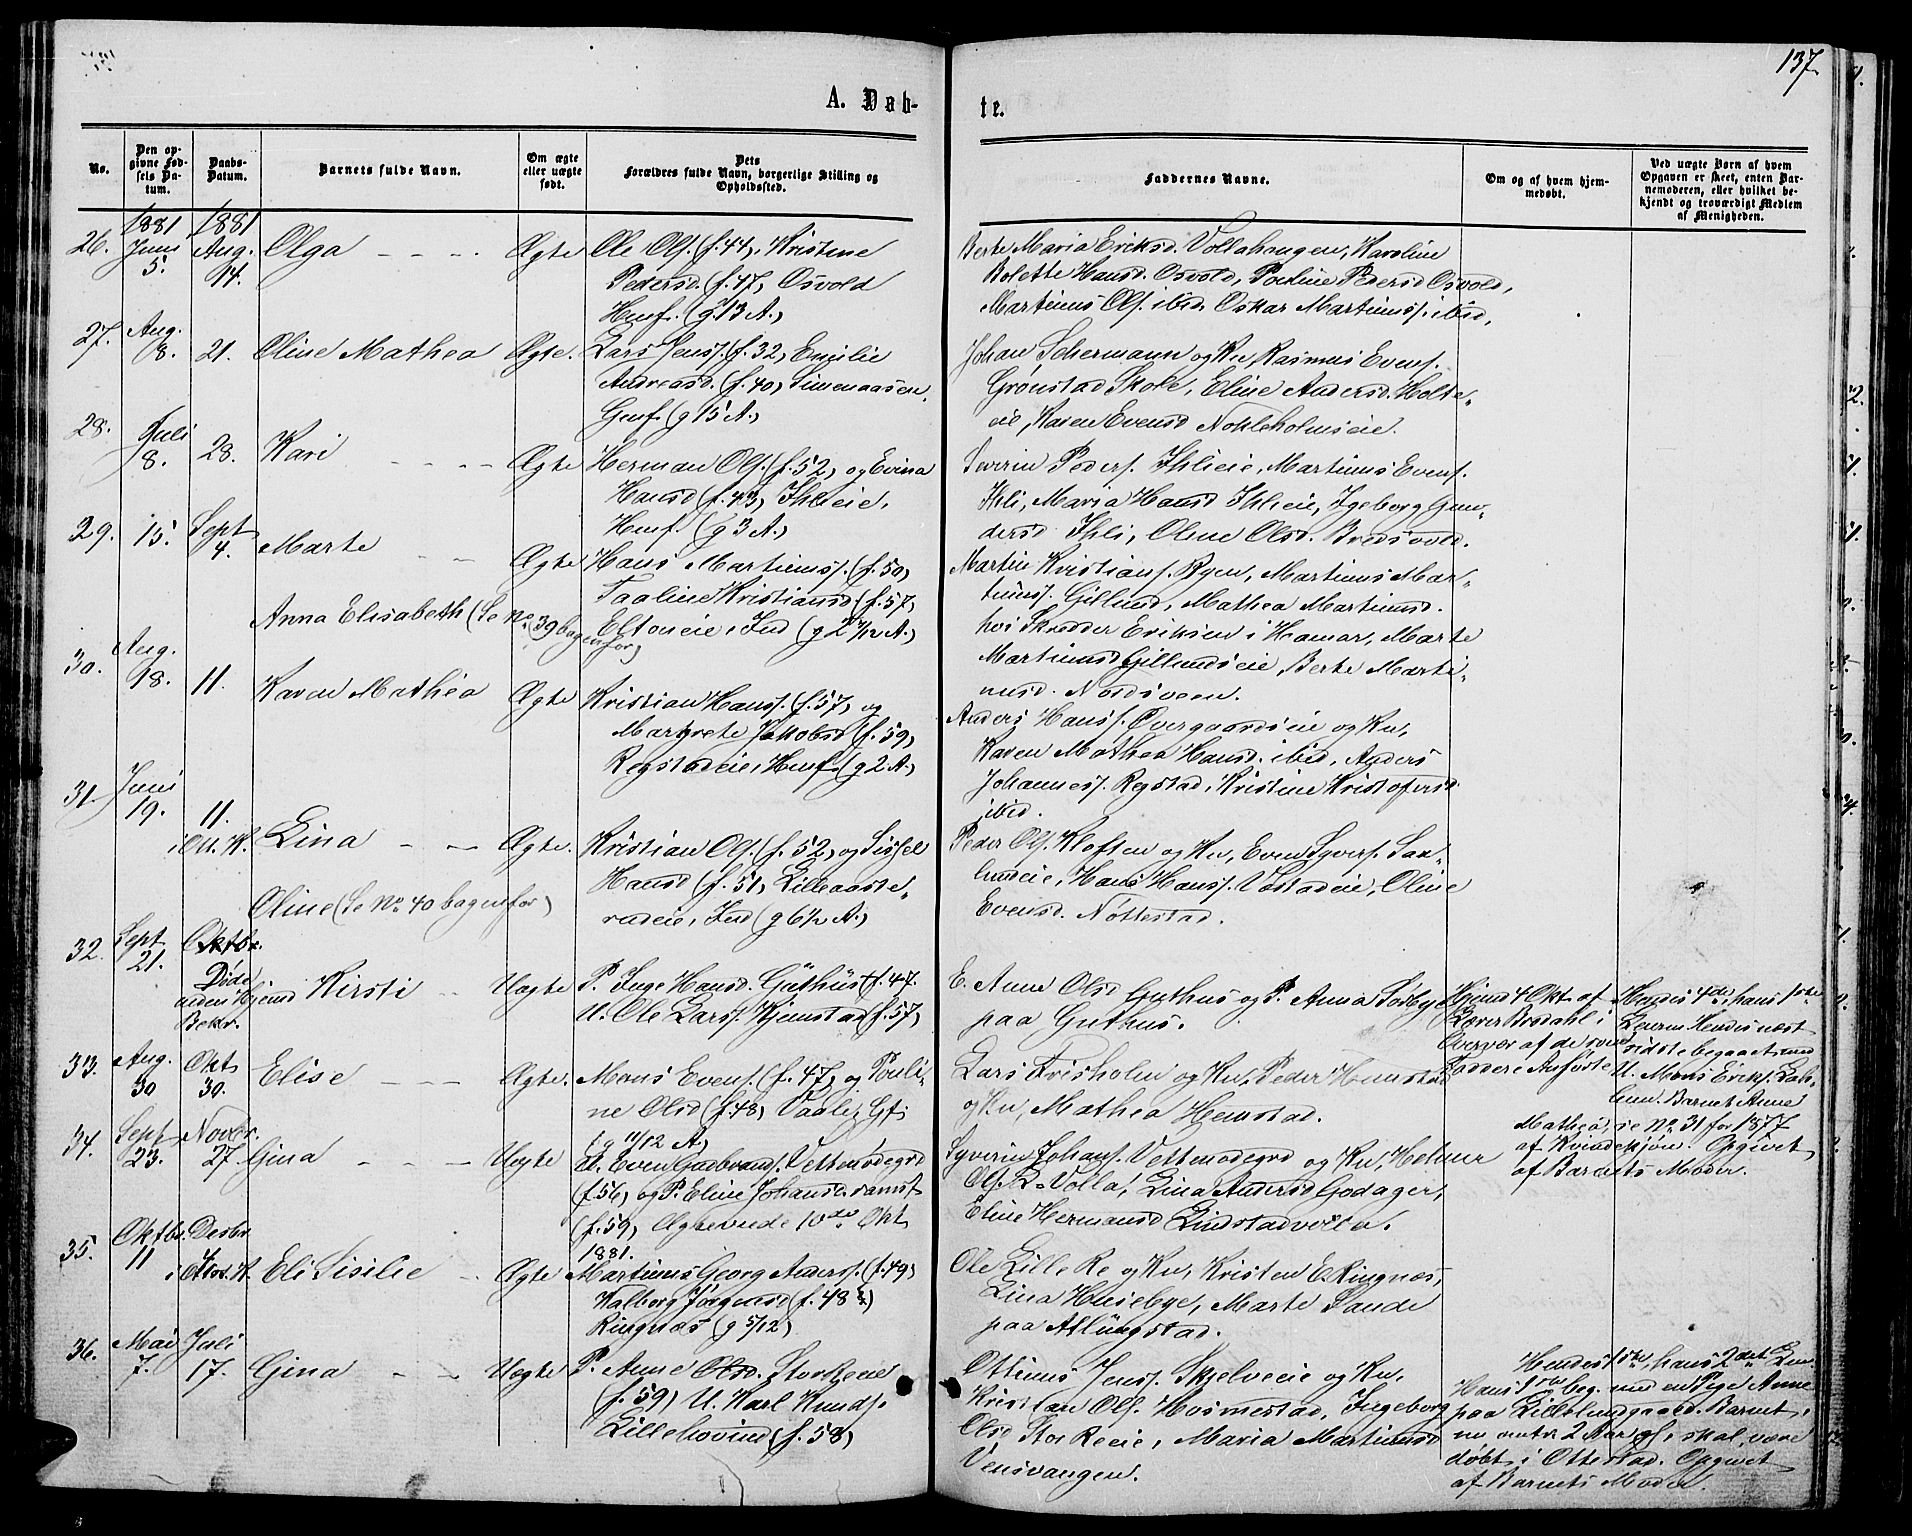 137.
A. Døb-
te.
No.
Den op-
givne Fød-
sels Da-
tum.
Daabs-
Datum.
Barnets fulde Navn.
Om ægte
eller uægte
født.
Dets
Forældres fulde Navn, borgerlige Stilling og
Opholdssted.
Faddernes Navne.
Om og af hvem hjem-
medøbt.
Ved uægte Børn af hvem
Opgaven er skeet, enten Bar-
nemoderen, eller hvilket be-
kjendt og troværdigt Medlem
af Menigheden.
26.
1881
Juni
5.
1881
Aug.
14.
Olga
Ægte
Ole Ols. (f. 44), Kristine
Pedersd. (f. 47), Osvold
(g. 13 A.)
Berte Maria Eriksd. Vollahaugen, Karoline
Bolette Hansd. Osvold, Pauline Pedersd Osvold,
Martinus Ols. ibid. Oskar Martinuss. ibid.
27.
Aug.
8.
21.
Oline Mathea
Ægte.
Lars Jenss. (f. 32), Emilie
Andreasd. (f. 40) Simenaasen,
(g 15 A.)
Johan Schermann og Ku, Rasmus Evens.
Grønstad Skole, Eline Andersd. Holte-
eie, Karen Evensd Nohleholmseie.
28.
Juli
8.
28.
Kari
Ægte
Herman Ols. (f. 52) og Evina
Hansd (f. 43), Ihleeie,
(g 3 A.)
Severin Peders. Ihlieie, Martinus Evens.
Ihli, Maria Hansd Ihlieie, Igeborg Gun-
dersd Ihli, Oline Olsd. Bredsvold.
29.
15.
Sept
4.
Marte
Ægte
Hans Martinuss. (f. 50)
Taaline Kristiansd. (f. 57),
Eltoneie, Ind (g 2 7/12 A.)
Martin Kristians. Ryen, Martinus Mar-
tinuss. Gillund, Mathea Martinusd.
hos Skrædder Eriksen i Hamar, Marte
Martinusd Gillundseie, Berte Marti-
nusd. Nordsveen.
Anna Elisabeth (Se No. 39 bagenfor)
30.
Aug.
18.
11.
Karen Mathea
Ægte
Kristian Hanss. (f. 57) og
Margrete Jakobsd (f. 59)
Regstadeie, (g 2 A.)
Anders Hanss. Overgaardseie og Ku,
Karen Mathea Hansd. ibid, Anders
Johanness. Regstad, Kristine Kristofersd
ibid.
31.
Juni
19.
11.
i Ott. K.
Lina
Ægte.
Kristian Ols. (f. 52) og Sissel
Hansd (f. 51), Lilleaaste-
rudeie, Ind (g 6 1/2 A.)
Peder Ols. Kloften og Ku, Even Syvers. Sax-
lundeie, Hans Hanss. Vostadeie, Oline
Evensd. Nøttestad.
Oline (Se No. 40 bagenfor)
32.
Sept
21.
Oktbr.
Døde
uden Hjemd
Bekr.
Kirsti
Uægte
P. Inge Hansd. Guthus f. 47.
U. Ole Larss. Kjemstad (f. 57)
E. Anne Olsd Guthus og P. Anna Sørbye
paa Guthus.
Hjemd 4 Okt. af
Lærer Brodahl i
Overvær af de to
Faddere Anførte
Hendes 4de, hans 1ste
Leierm. Hendes næst
sidste begaaet med
U. Mons Eriks.
Barnet Anne
Mathea, se No. 31 for 1877
af Kvindekjøn. Opgivet
af Barnets Moder.
33.
Aug.
30
Okt
30.
Elise
Ægte.
Mons Evens. (f. 47) og Pouli-
ne Olsd (f. 48) Vaale, Gf.
(g 11/12 A.)
Lars Frisholm og Ku, Peder Hemstad
og Ku, Mathea Hemstad.
34.
Sept
23.
Novbr.
27.
Gina
Uægte
U. Even Gudbrands. Vettenodegrd
(f. 56) og P. Eline Johansd samst
(f. 59) Ægteviede 10de Okt
1881.
Syverin Johans. Vettenodegrd og Ku, Helmer
Ols. L. Volla, Lina Andersd Godager,
Eline Hermansd Lindstadvolden.
35.
Oktbr.
11
Desbr.
4
i K.
Eli Sisilie
Ægte
Martinus Georg Anderss. (f. 49)
Valborg Jørgensd (f. 48)
Ringnæs (g 5/12)
Ole Lille Re og Ku, Kristen E Ringnæs,
Lina Husebye, Marte Sande
paa Atlungstad.
36.
Mai
7.
Juli
17.
Gina
Uægte
P. Anne Olsd. Stor Reeie
(f. 59) U. Karl Knuds.
Lillehovind (f. 58)
Ottinus Jenss. Skjelveeie og Ku,
Kristian Ols. Hosmestad, Ingeborg
Olsd Stor Reeie, Maria Martinusd
Vensvangen.
Hendes 1ste, hans 2det
Hans 1ste beg. med en Pige Anne
paa Lillelundgaard. Barnet,
nu omtr 2 Aar gl, skal være
døbt i Ottestad. Opgivet
af Barnets Moder.